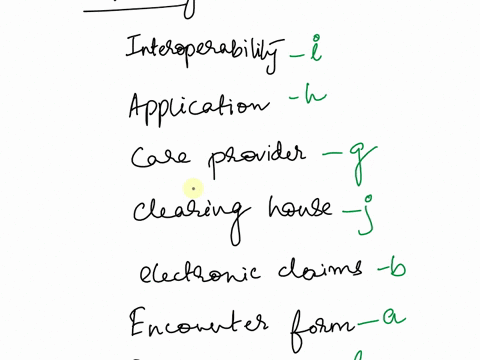 Interoperability - i
Application - h
Care provider - g
Clearing house - j
electronic claims - b
Encounter form - a